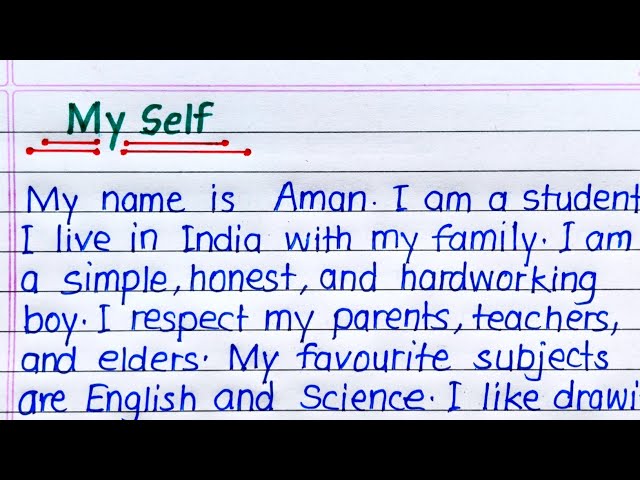 My Self
My name is Aman. I am a student
I live in India with my family. I am
a simple, honest, and hardworking
boy. I respect my parents, teachers,
and elders. My favourite subjects
are English and Science. I like drawi